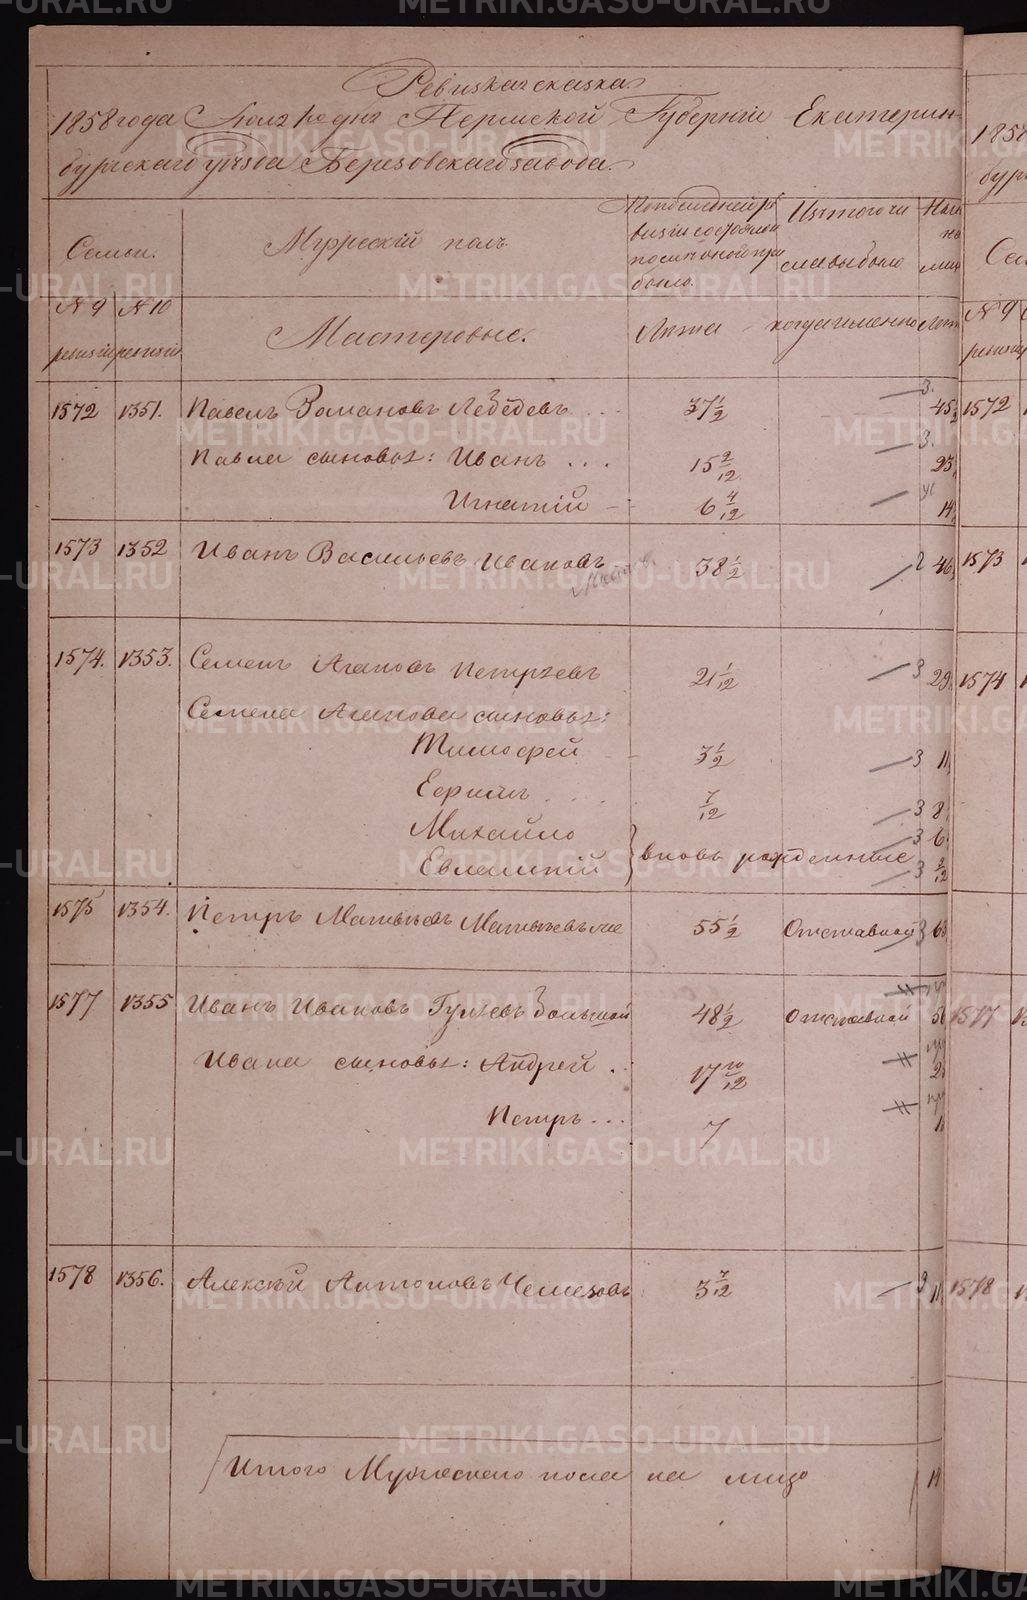 Ревизская сказка
1858 года Іюля дня Пермской Губерніи Екатерин-
бургскаго уѣзда Березовскаго завода.
Семьи.
Мужескій полъ
По последней ре
визіи состояло
и после оной при
было.
Изъ того чи
сла выбыло
Ныне
на
лицо
№ 9
ревизіи
№ 10
ревизіи
Мастеровые.
Лѣта
когда именно
Лета
1572 1351. Павелъ Лебедевъ . . . 37 1/2 3. 45
Павла сыновья: Иванъ . . . . 15 2/12 3. 23
Игнатій - - 6 4/12 14
1573 1352 Иванъ Васильевъ Ивановъ 38 1/2 2 46
1574. 1353. Семенъ Агаповъ Петрѣевъ 21 1/12 3 29
Семена Агапова сыновья:
Тимофей 3 1/2 3 11
Ефимъ . . . . 7/12 3 8
Михайло 3 6
Евлампій вновь рожденные 3 2/12
1575 1354. Петръ Матвѣевъ 55 1/2 Отставной 3 63
1577 1355 Иванъ Ивановъ Гуляевъ Большой 48 1/2 Отставной 56
Ивана сыновья: Андрей . . 17 10/12
Петръ . . . 7
1578 1356. Алексѣй Антоновъ Чемезовъ 3 7/12 11
Итого Мужескаго пола на лицо
1572
1573
1574
1577
1578
METRIKI.GASO-URAL.RU